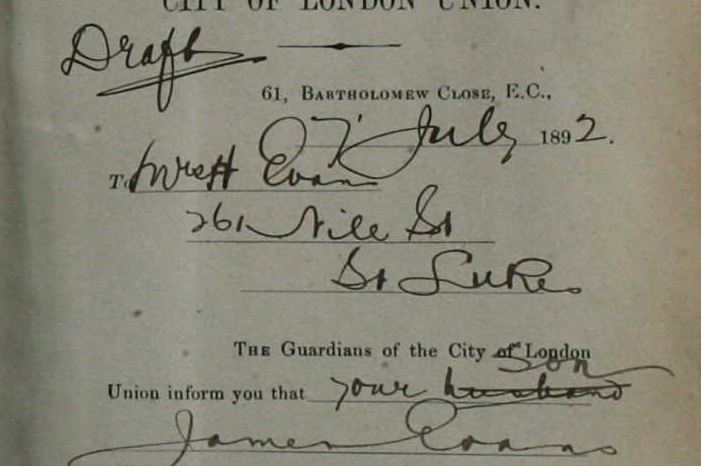 CITY OF LONDON UNION.
Draft
61, BARTHOLOMEW CLOSE, E.C.,
7 July 1892.
To Evans
261 Nile St
St Lukes
THE Guardians of the City of London
son
Union inform you that your husband
James Evans